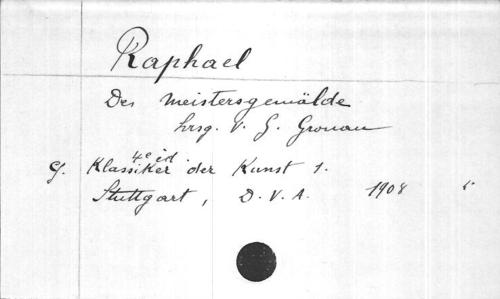 Raphael
Des Meistersgemälde
hrsg. v. G. Gronau
4e éd
Klassiker der Kunst 1.
Stuttgart, D. V. A. 1908